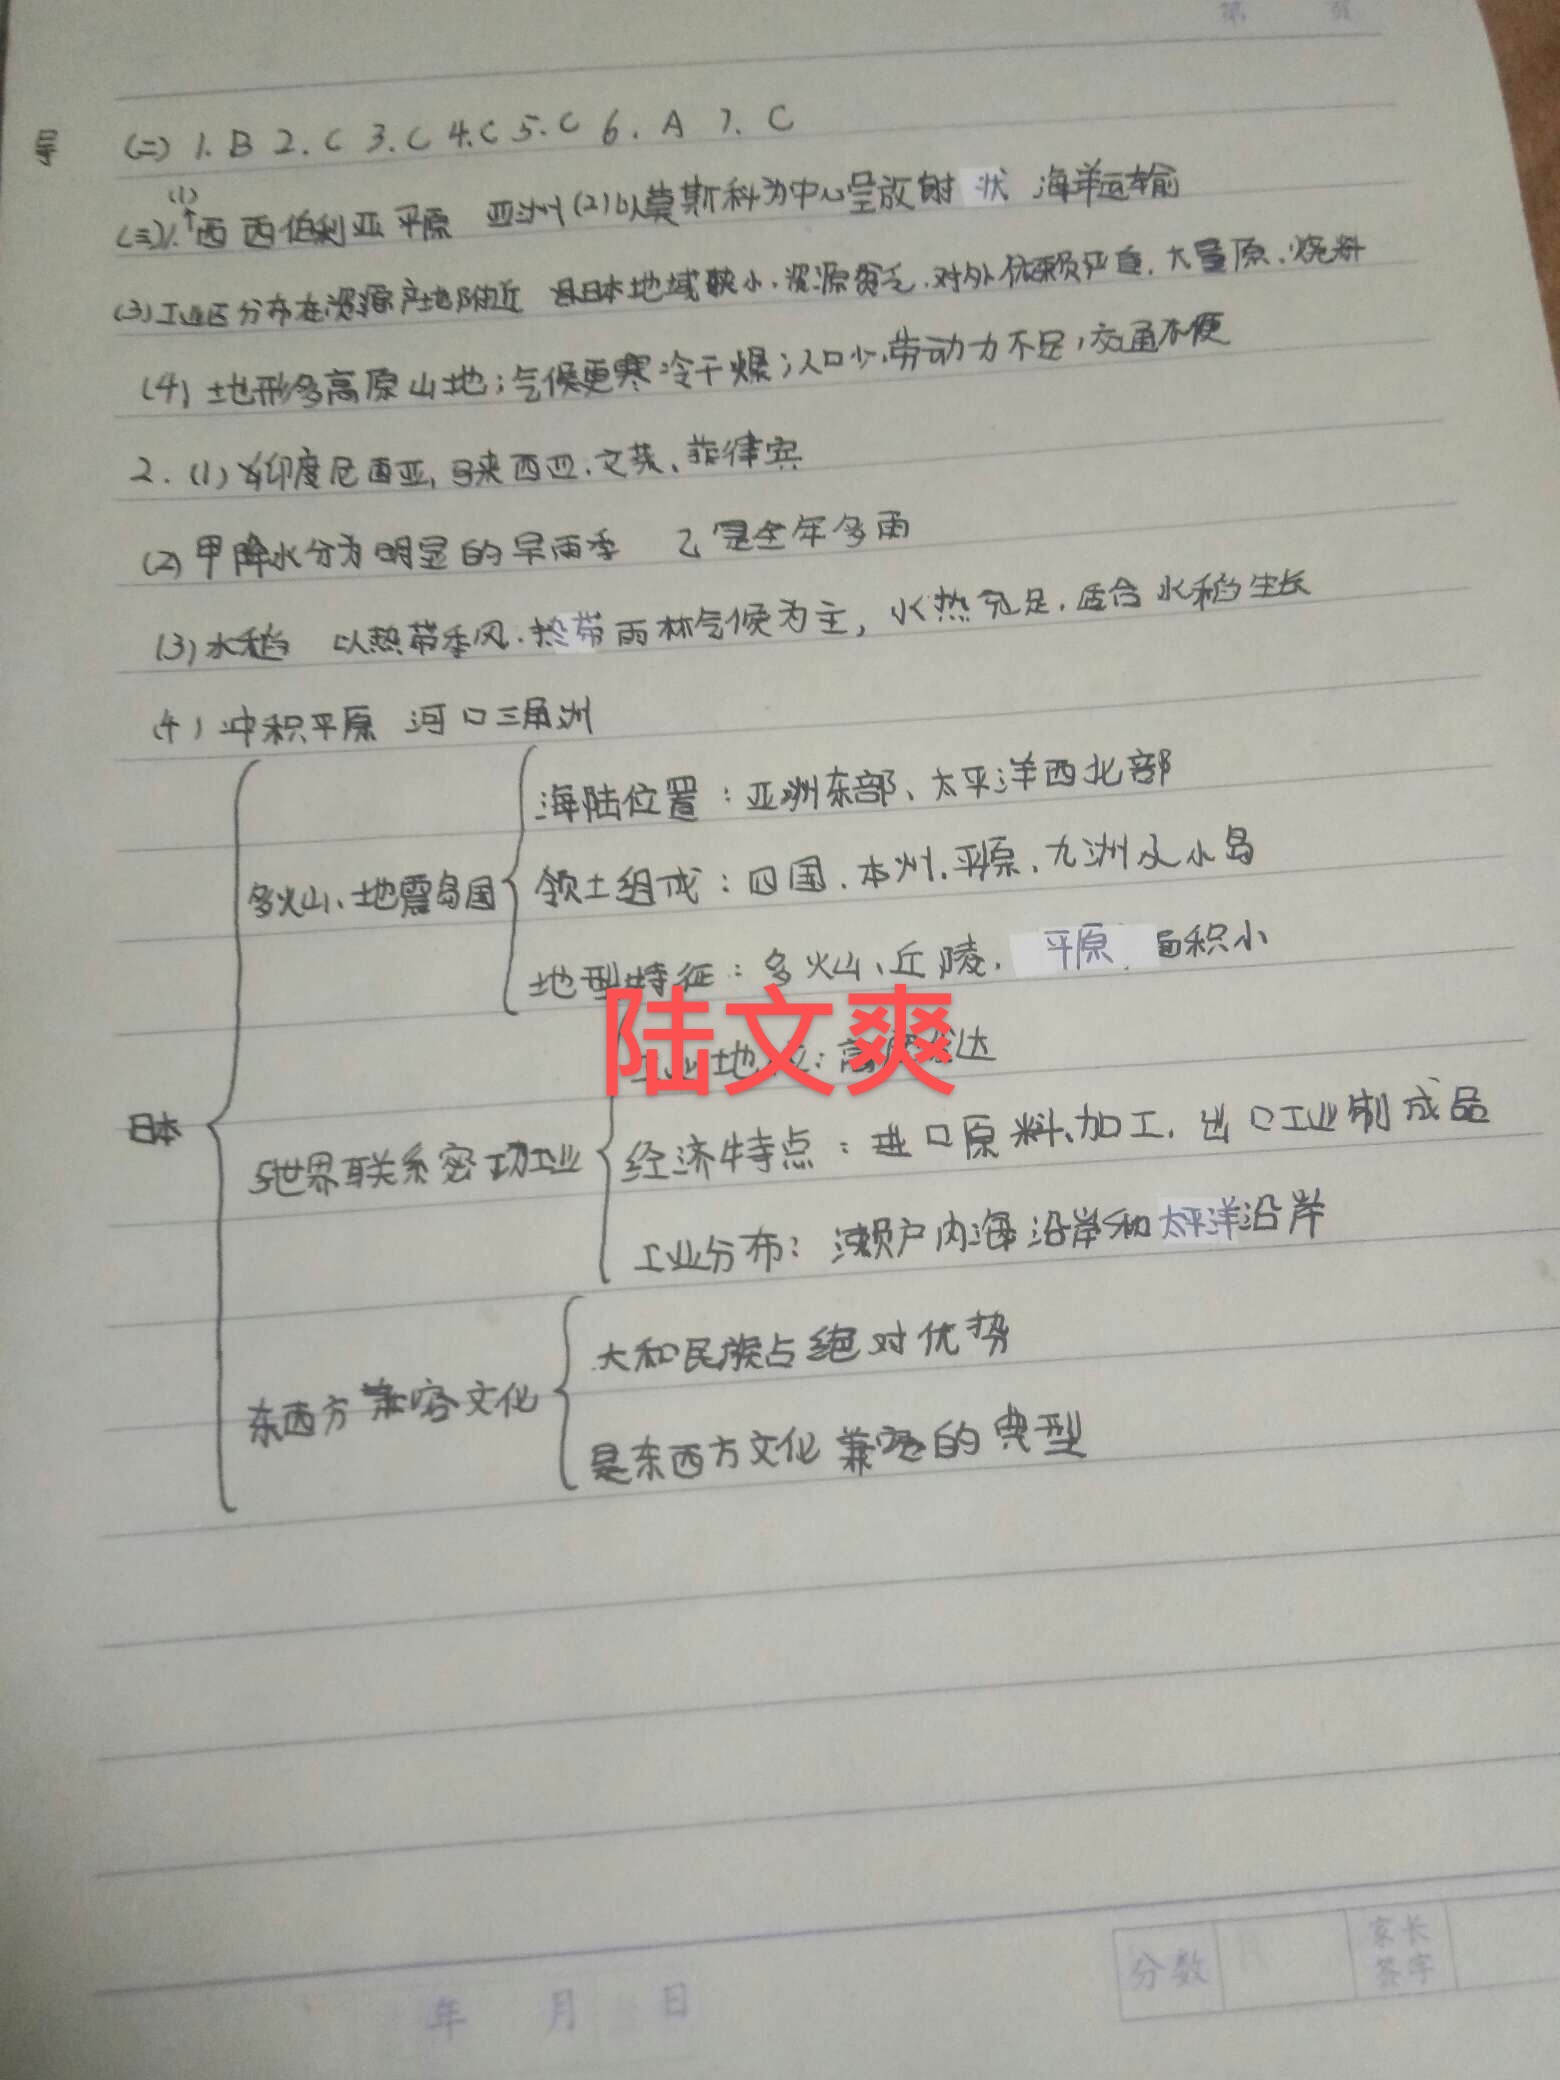 第 页
导 (二) 1. B 2. C 3. C 4. C 5. C 6. A 7. C
(1)
(三)1.↑西 西伯利亚平原 亚洲 (2)以莫斯科为中心呈放射状 海洋运输
(3)工业区分布在资源产地附近 日本地域狭小,资源贫乏,对外依赖严重,大量原、烧料
(4)地形多高原山地;气候更寒冷干燥;人口少,劳动力不足,交通不便
2.(1)印度尼西亚,马来西亚、文莱、菲律宾
(2)甲降水分为明显的旱雨季 乙是全年多雨
(3)水稻 以热带季风、热带雨林气候为主,水热充足,适合水稻生长
(4)冲积平原 河口三角洲
海陆位置:亚洲东部、太平洋西北部
多火山、地震岛国
领土组成:四国、本州、平原、九洲及小岛
地型特征:多火山、丘陵、平原 面积小
陆文爽
工业地位:高度发达
日本
与世界联系密切工业
经济特点:进口原料、加工,出口工业制成品
工业分布:濑户内海沿岸和太平洋沿岸
大和民族占绝对优势
东西方兼容文化
是东西方文化兼容的典型
分数
家长
签字
年 月 日